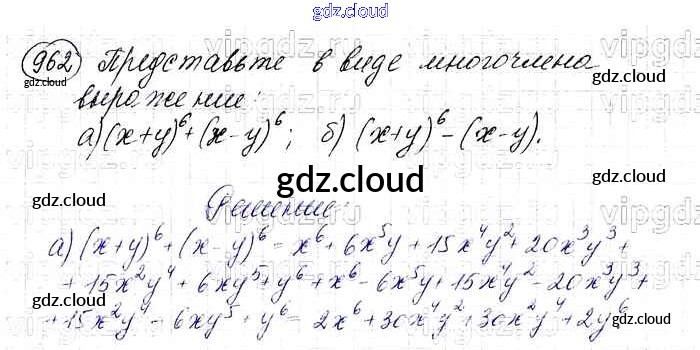 gdz.cloud
962 Представьте в виде многочлена
gdz.cloud
выражение:
а) (x+y)⁶+(x-y)⁶; б) (x+y)⁶-(x-y).
gdz.cloud
gdz.cloud
gdz.cloud
Решение:
gdz.cloud
gdz.cloud
а) (x+y)⁶+(x-y)⁶= x⁶+6x⁵y+15x⁴y²+20x³y³+
+15x²y⁴+6xy⁵+y⁶+x⁶-6x⁵y+15x⁴y²-20x³y³+
gdz.cloud
+15x²y⁴-6xy⁵+y⁶= 2x⁶+30x⁴y²+30x²y⁴+2y⁶
gdz.cloud